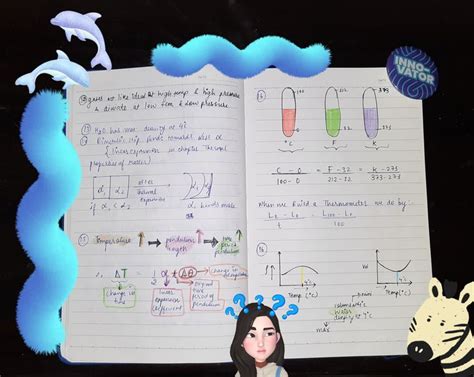 INNO
VATOR
gases act like ideal at high temp & high pressure
& deviate at low tem & low pressure
H₂O has max density at 4°
strip bends towards less α
(linear expansion in chapter Thermal
properties of matter)
α₁ α₂
thermal
expansion
if α₁ < α₂
α₁ bends more
Temperature ↑ → pendulum length ↑ → time period pendulum ↑
ΔT = 1/2 α t Δθ
change in time
linear expansion coefficient
original time period of pendulum
100 212 373
0 32 273
°C F K
C - 0 / 100 - 0 = F - 32 / 212 - 32 = K - 273 / 373 - 273
When we build a Thermometer we do by:
100
Vol
Temp (°C) Temp (°C)
water
4°C
max
? ? ? ? ?